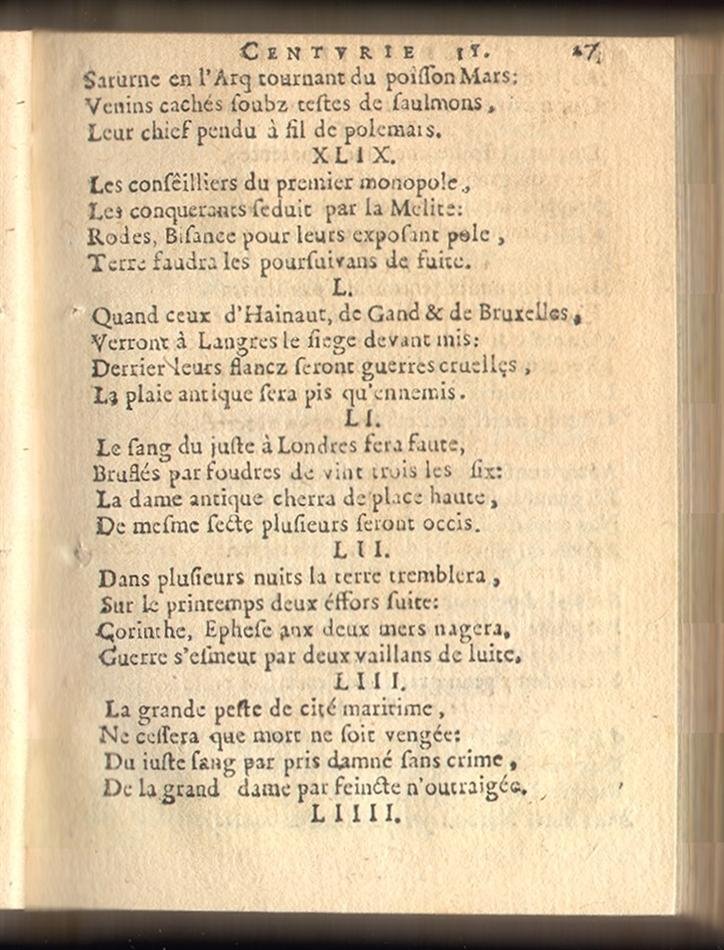 CENTVRIE II. 27
Saturne en l'Arq tournant du poiſſon Mars:
Venins cachés ſoubz teſtes de ſaulmons,
Leur chief pendu à fil de polemars.
XLIX.
Les conſêilliers du premier monopole,
Les conquerants ſeduit par la Melite:
Rodes, Biſance pour leurs expoſant pole,
Terre faudra les pourſuivans de fuite.
L.
Quand ceux d'Hainaut, de Gand & de Bruxelles,
Verront à Langres le ſiege devant mis:
Derrier leurs flancz ſeront guerres cruelles,
La plaie antique ſera pis qu'ennemis.
LI.
Le ſang du juſte à Londres fera faute,
Bruſlés par foudres de vint trois les ſix:
La dame antique cherra de place haute,
De meſme ſecte pluſieurs ſeront occis.
LII.
Dans pluſieurs nuits la terre tremblera,
Sur le printemps deux éffors ſuite:
Corinthe, Epheſe aux deux mers nagera,
Guerre s'eſmeut par deux vaillans de luite.
LIII.
La grande peſte de cité maritime,
Ne ceſſera que mort ne ſoit vengée:
Du iuſte ſang par pris damné ſans crime,
De la grand dame par feincte n'outraigée.
LIIII.